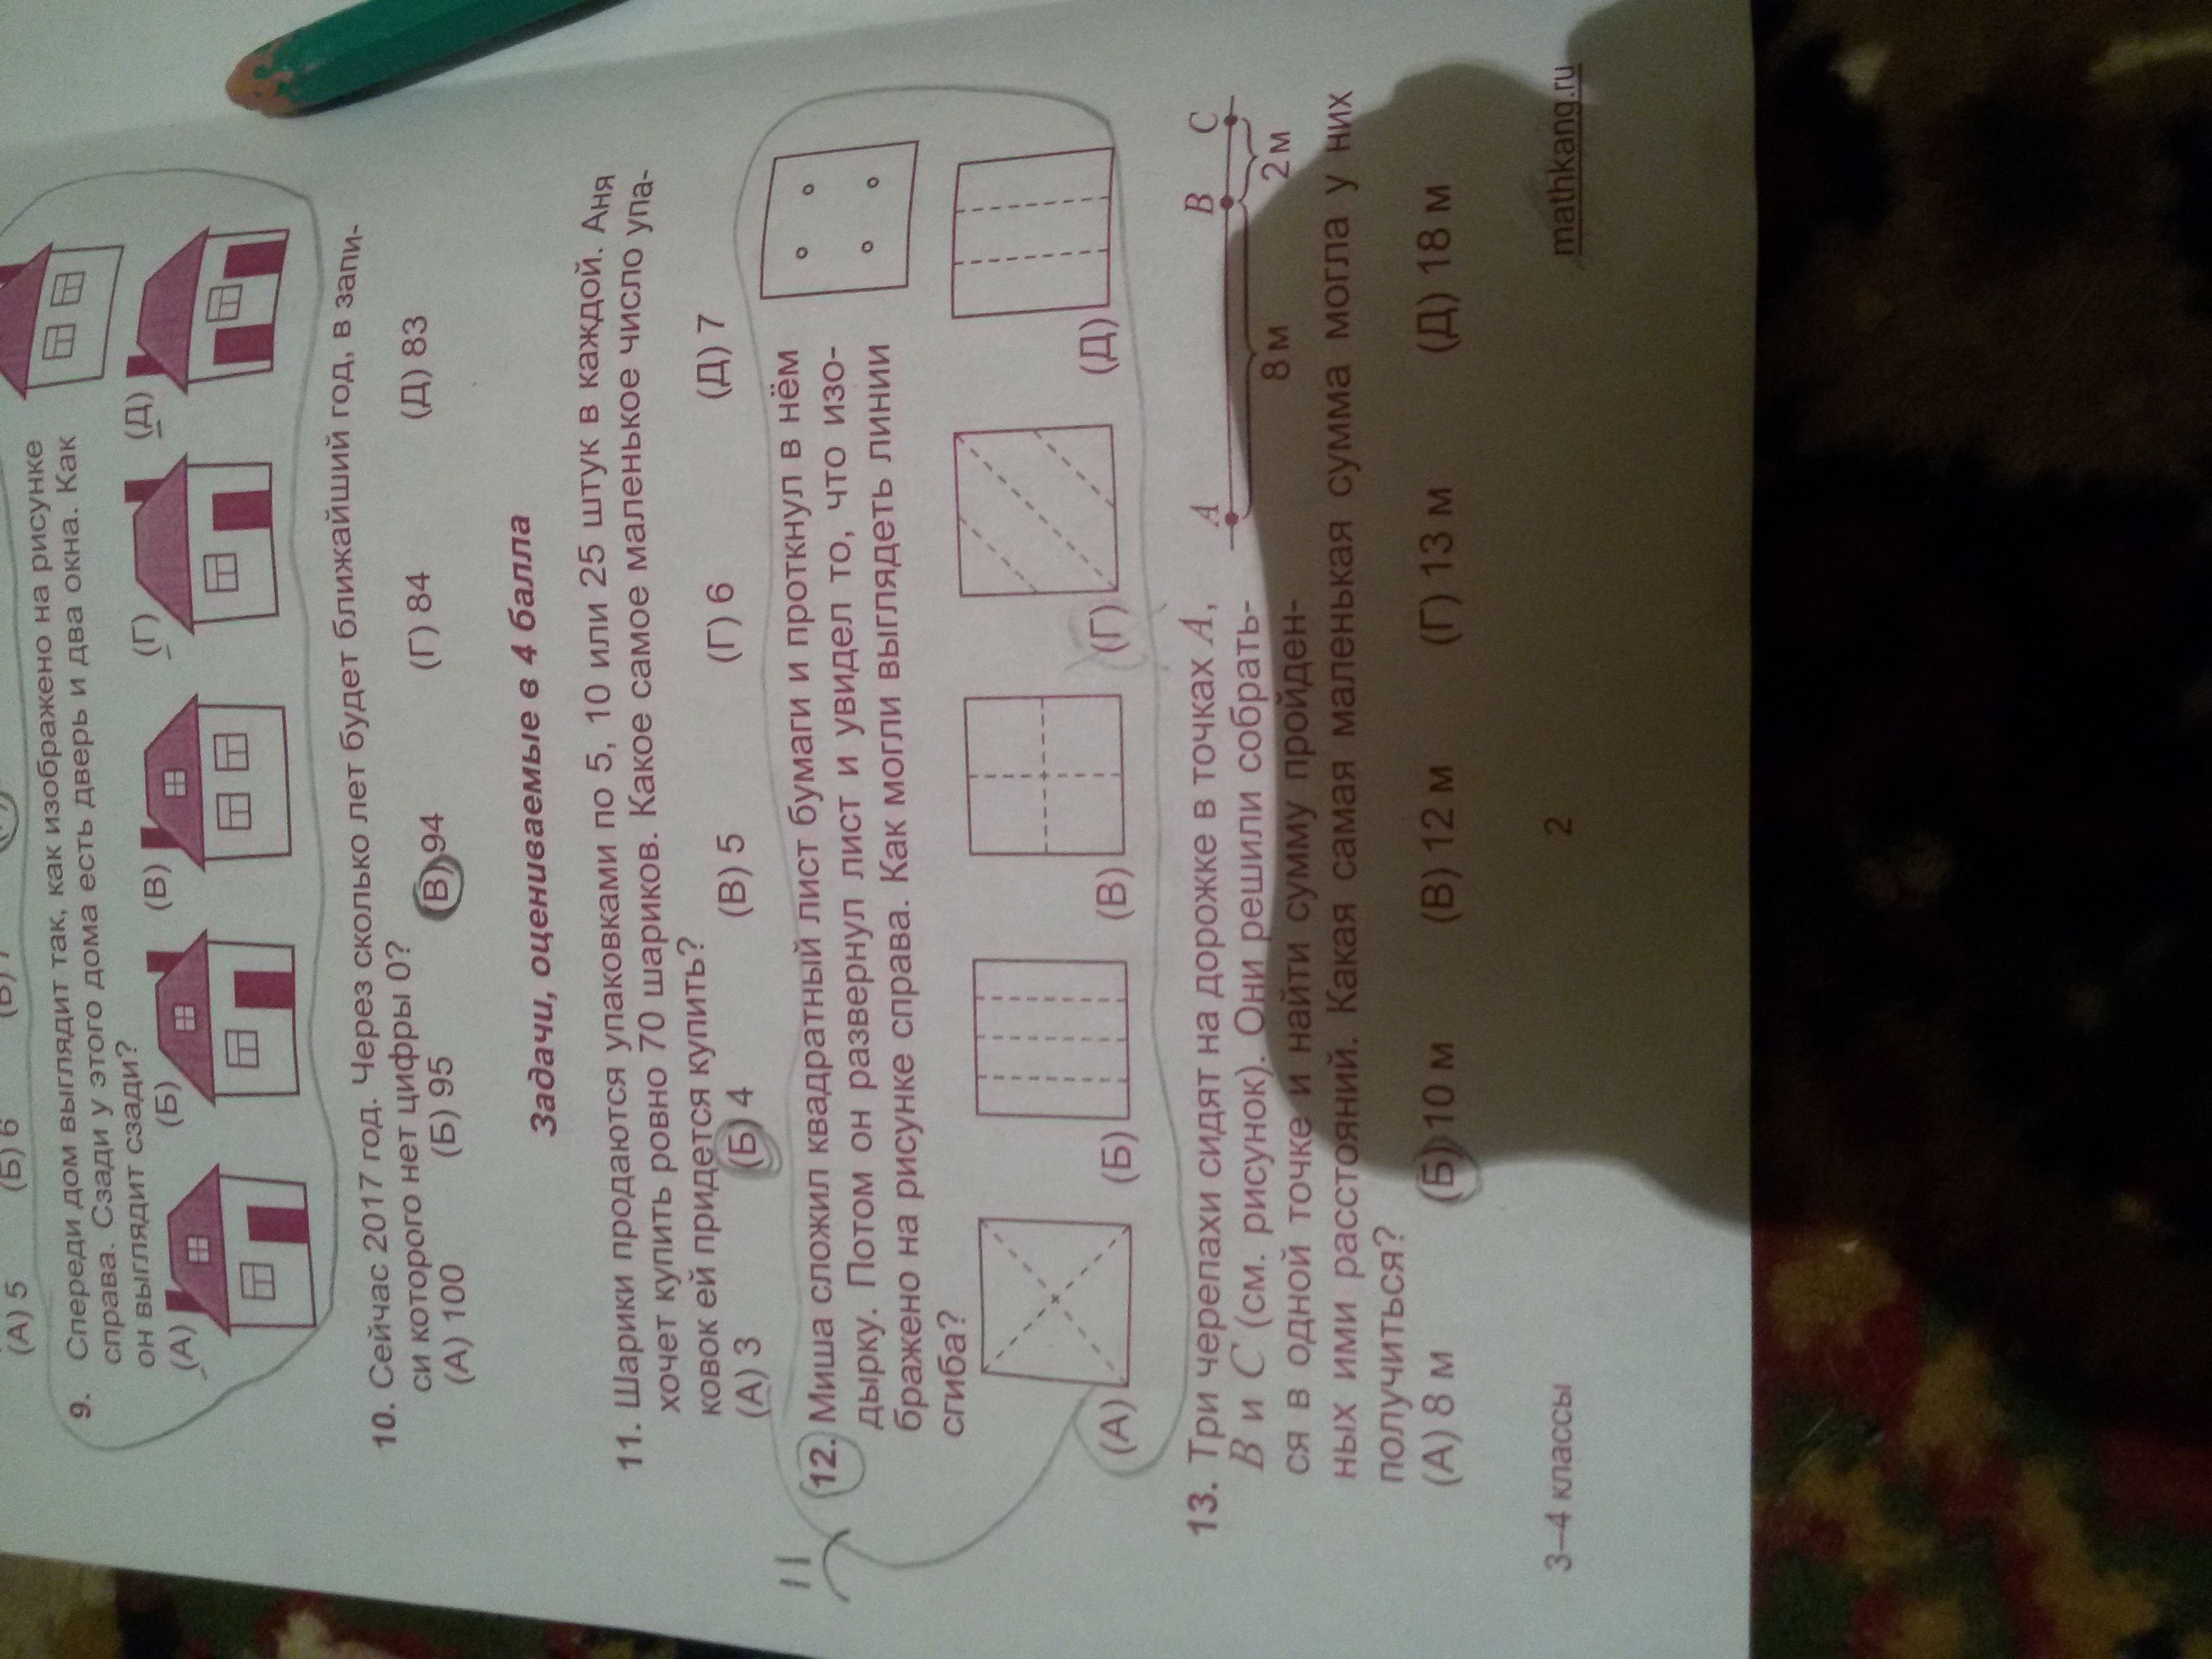 (А) 5 (Б) 6
9. Спереди дом выглядит так, как изображено на рисунке
справа. Сзади у этого дома есть дверь и два окна. Как
он выглядит сзади?
(А) (Б) (В) (Г) (Д)
10. Сейчас 2017 год. Через сколько лет будет ближайший год, в запи-
си которого нет цифры 0?
(А) 100 (Б) 95 (В) 94 (Г) 84 (Д) 83
Задачи, оцениваемые в 4 балла
11. Шарики продаются упаковками по 5, 10 или 25 штук в каждой. Аня
хочет купить ровно 70 шариков. Какое самое маленькое число упа-
ковок ей придется купить?
(А) 3 (Б) 4 (В) 5 (Г) 6 (Д) 7
11
12. Миша сложил квадратный лист бумаги и проткнул в нём
дырку. Потом он развернул лист и увидел то, что изо-
бражено на рисунке справа. Как могли выглядеть линии
сгиба?
(А) (Б) (В) (Г) (Д)
13. Три черепахи сидят на дорожке в точках A,
B и C (см. рисунок). Они решили собрать-
ся в одной точке и найти сумму пройден-
ных ими расстояний. Какая самая маленькая сумма могла у них
получиться?
A B C
8 м 2 м
(А) 8 м (Б) 10 м (В) 12 м (Г) 13 м (Д) 18 м
3–4 классы 2 mathkang.ru